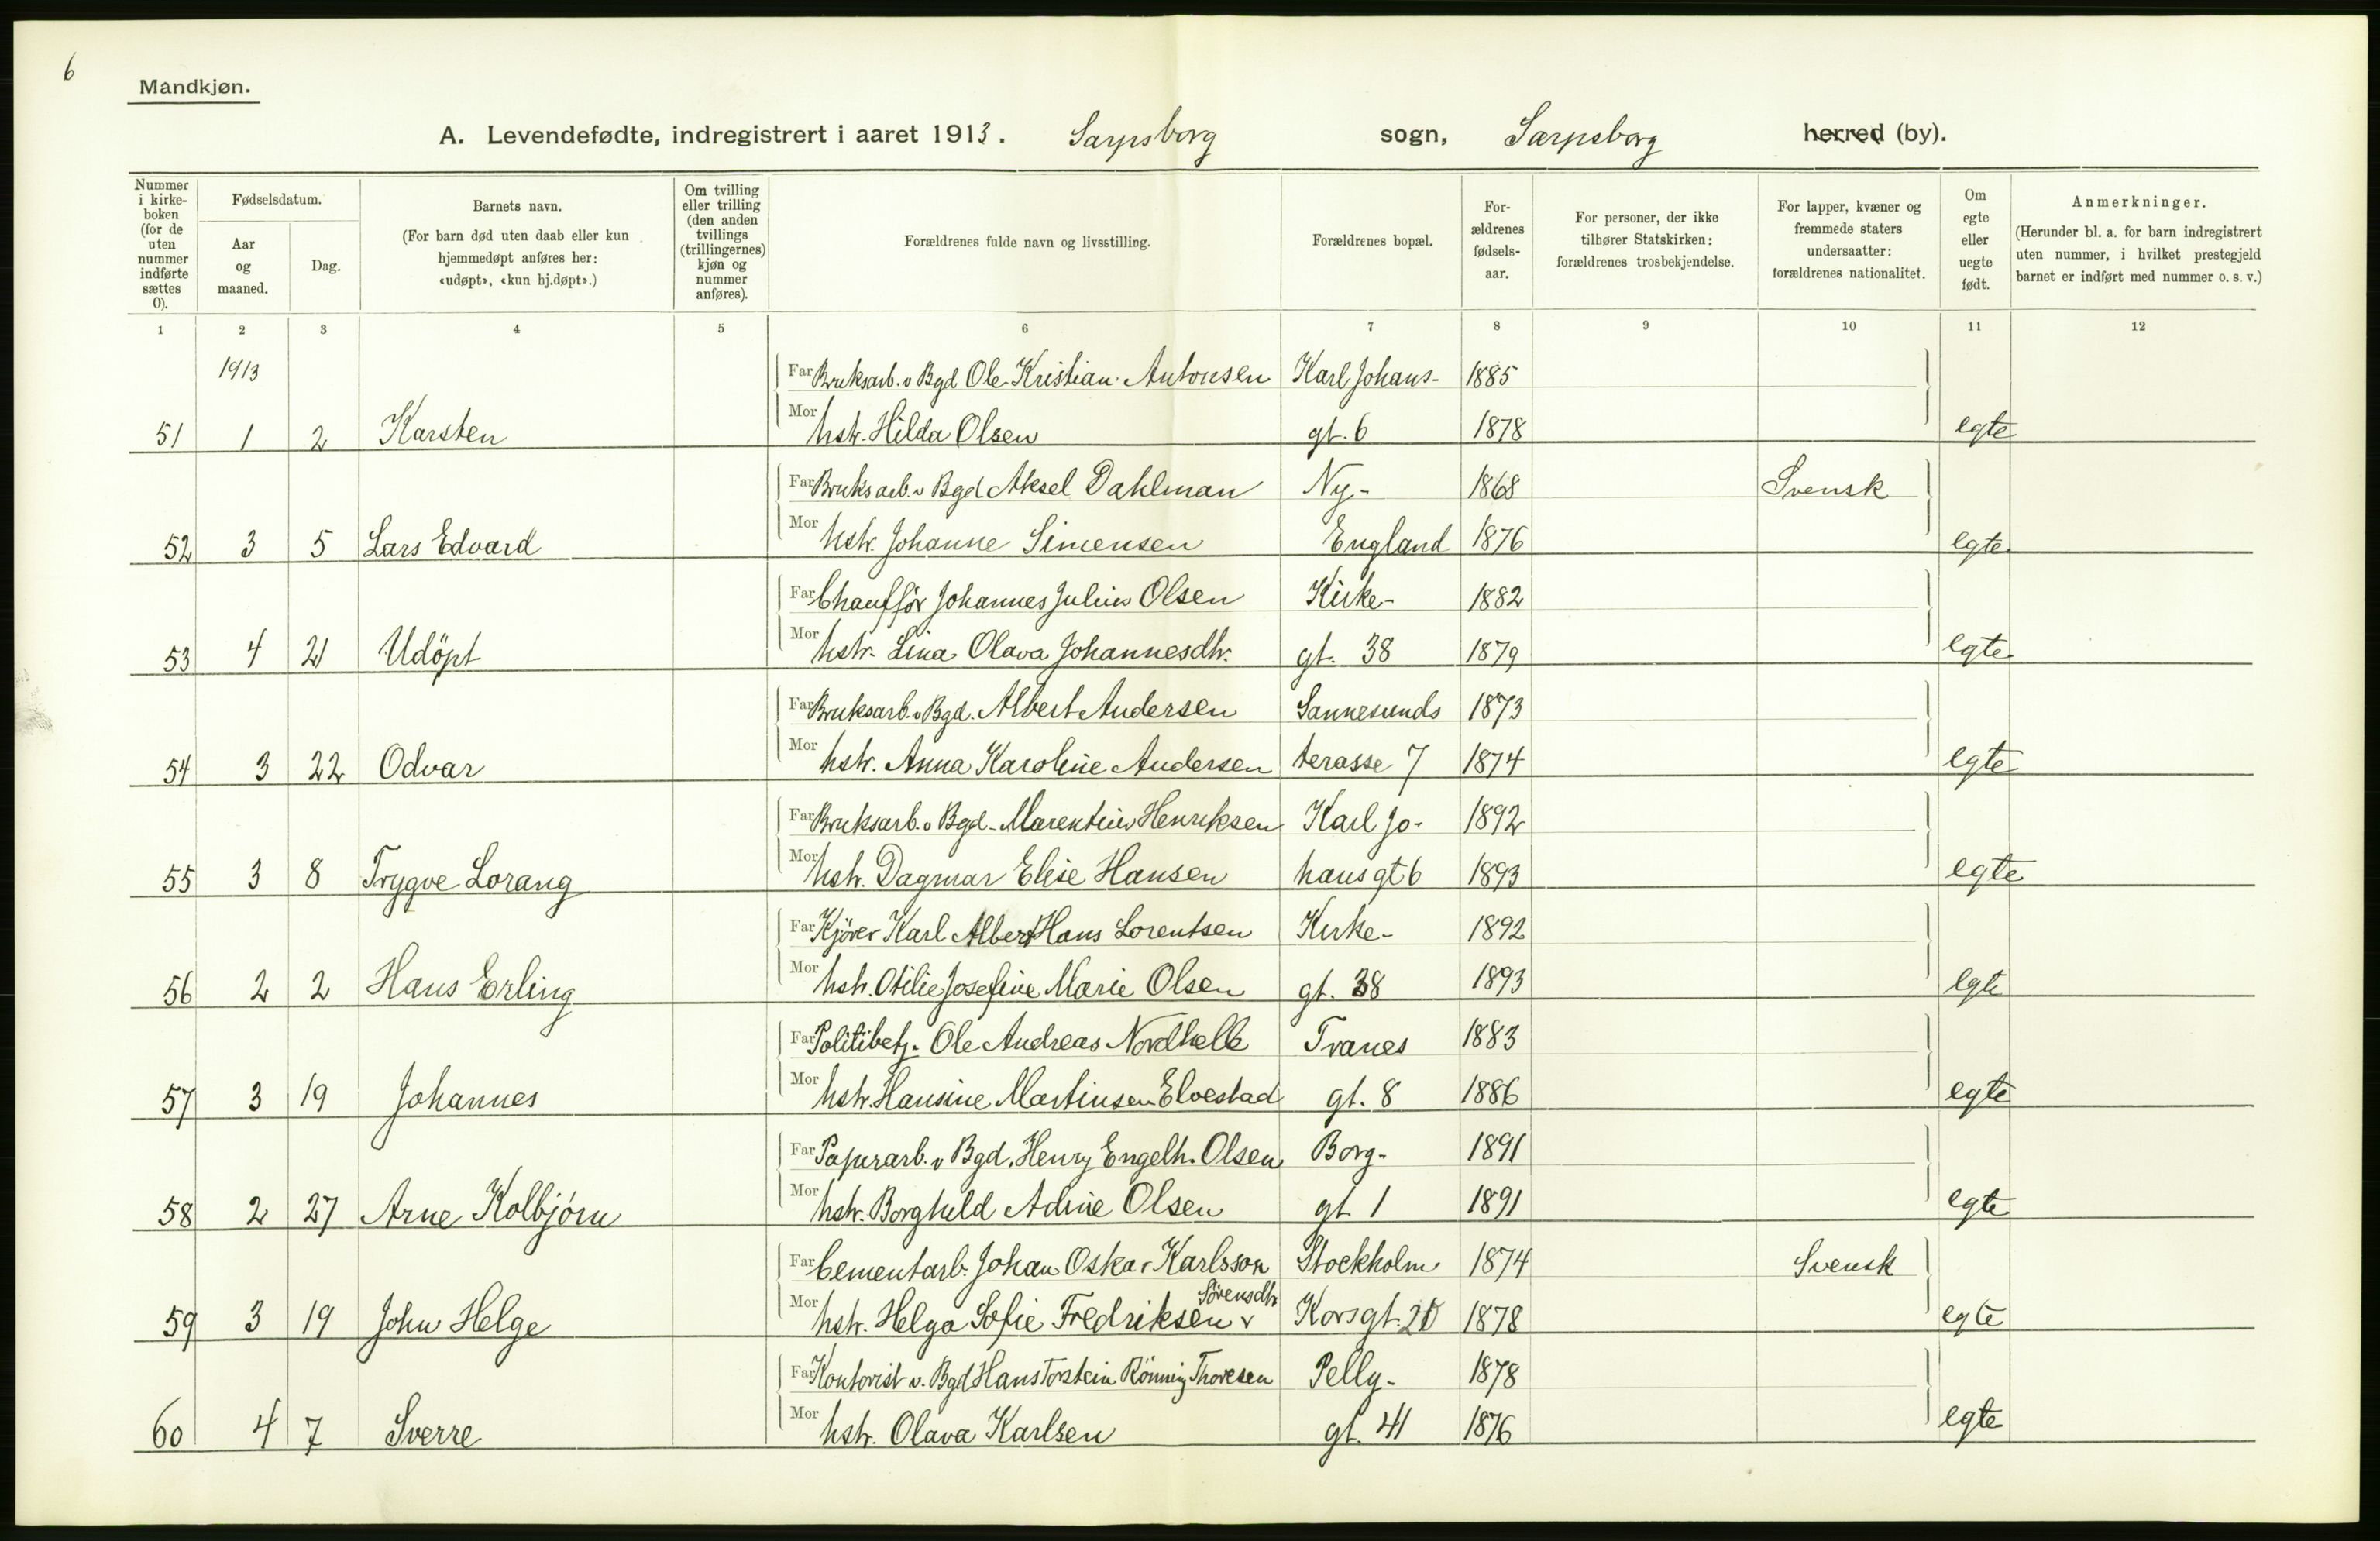 6
Mandkjøn.
A. Levendefødte, indregistrert i aaret 1913. Sarpsborg sogn, Sarpsborg herred (by).
Nummer i kirke-boken (for de uten nummer indførte sættes 0).
Fødselsdatum.
Aar og maaned.
Dag.
Barnets navn.
(For barn død uten daab eller kun hjemmedøpt anføres her: «udøpt», «kun hj.døpt».)
Om tvilling eller trilling (den anden tvillings (trillingernes) kjøn og nummer anføres).
Forældrenes fulde navn og livsstilling.
Forældrenes bopæl.
For-ældrenes fødsels-aar.
For personer, der ikke tilhører Statskirken: forældrenes trosbekjendelse.
For lapper, kvæner og fremmede staters undersaatter: forældrenes nationalitet.
Om egte eller uegte født.
Anmerkninger.
(Herunder bl. a. for barn indregistrert uten nummer, i hvilket prestegjeld barnet er indført med nummer o. s. v.)
1 2 3 4 5 6 7 8 9 10 11 12
1913 Far Bruksarb. v Bgd Ole Kristian Antonsen Karl Johans- 1885
51 1 2 Karsten Mor hstr. Hilda Olsen gt. 6 1878 egte
Far Bruksarb. v Bgd Aksel Dahlman Ny- 1868 Svensk
52 3 5 Lars Edvard Mor hstr. Johanne Simensen England 1876 egte
Far Chaufför Johannes Julius Olsen Kirke- 1882
53 4 21 Udöpt Mor hstr. Lina Olava Johannesdtr. gt. 38 1879 egte
Far Bruksarb. v Bgd. Albert Andersen Sannesunds 1873
54 3 22 Odvar Mor hstr. Anna Karoline Andersen terasse 7 1874 egte
Far Bruksarb. v Bgd. Marentius Henriksen Karl Jo- 1892
55 3 8 Trygve Lorang Mor hstr. Dagmar Elise Hansen hans gt 6 1893 egte
Far Kjörer Karl Albert Hans Lorentsen Kirke- 1892
56 2 2 Hans Erling Mor hstr. Otilie Josefine Marie Olsen gt. 38 1893 egte
Far Politibetj. Ole Andreas Nordhelle Tranes 1883
57 3 19 Johannes Mor hstr. Hansine Martinsen Elvestad gt. 8 1886 egte
Far Papirarb. v Bgd. Henry Engelh. Olsen Borg- 1891
58 2 27 Arne Kolbjörn Mor hstr. Borghild Adine Olsen gt 1 1891 egte
Far Cementarb. Johan Oskar Karlsson Stockholm 1874 Svensk
Sörensdtr
59 3 19 John Helge Mor hstr. Helga Sofie Fredriksen v Korsgt. 20 1878 egte
Far Kontorist v. Bgd Hans Torstein Rönning Thoresen Pelly- 1878
60 4 7 Sverre Mor hstr. Olava Karlsen gt. 41 1876 egte